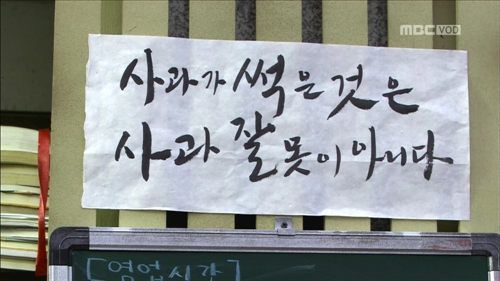 MBC VOD
사과가 썩은 것은
사과 잘못이 아니다
[영업시간]